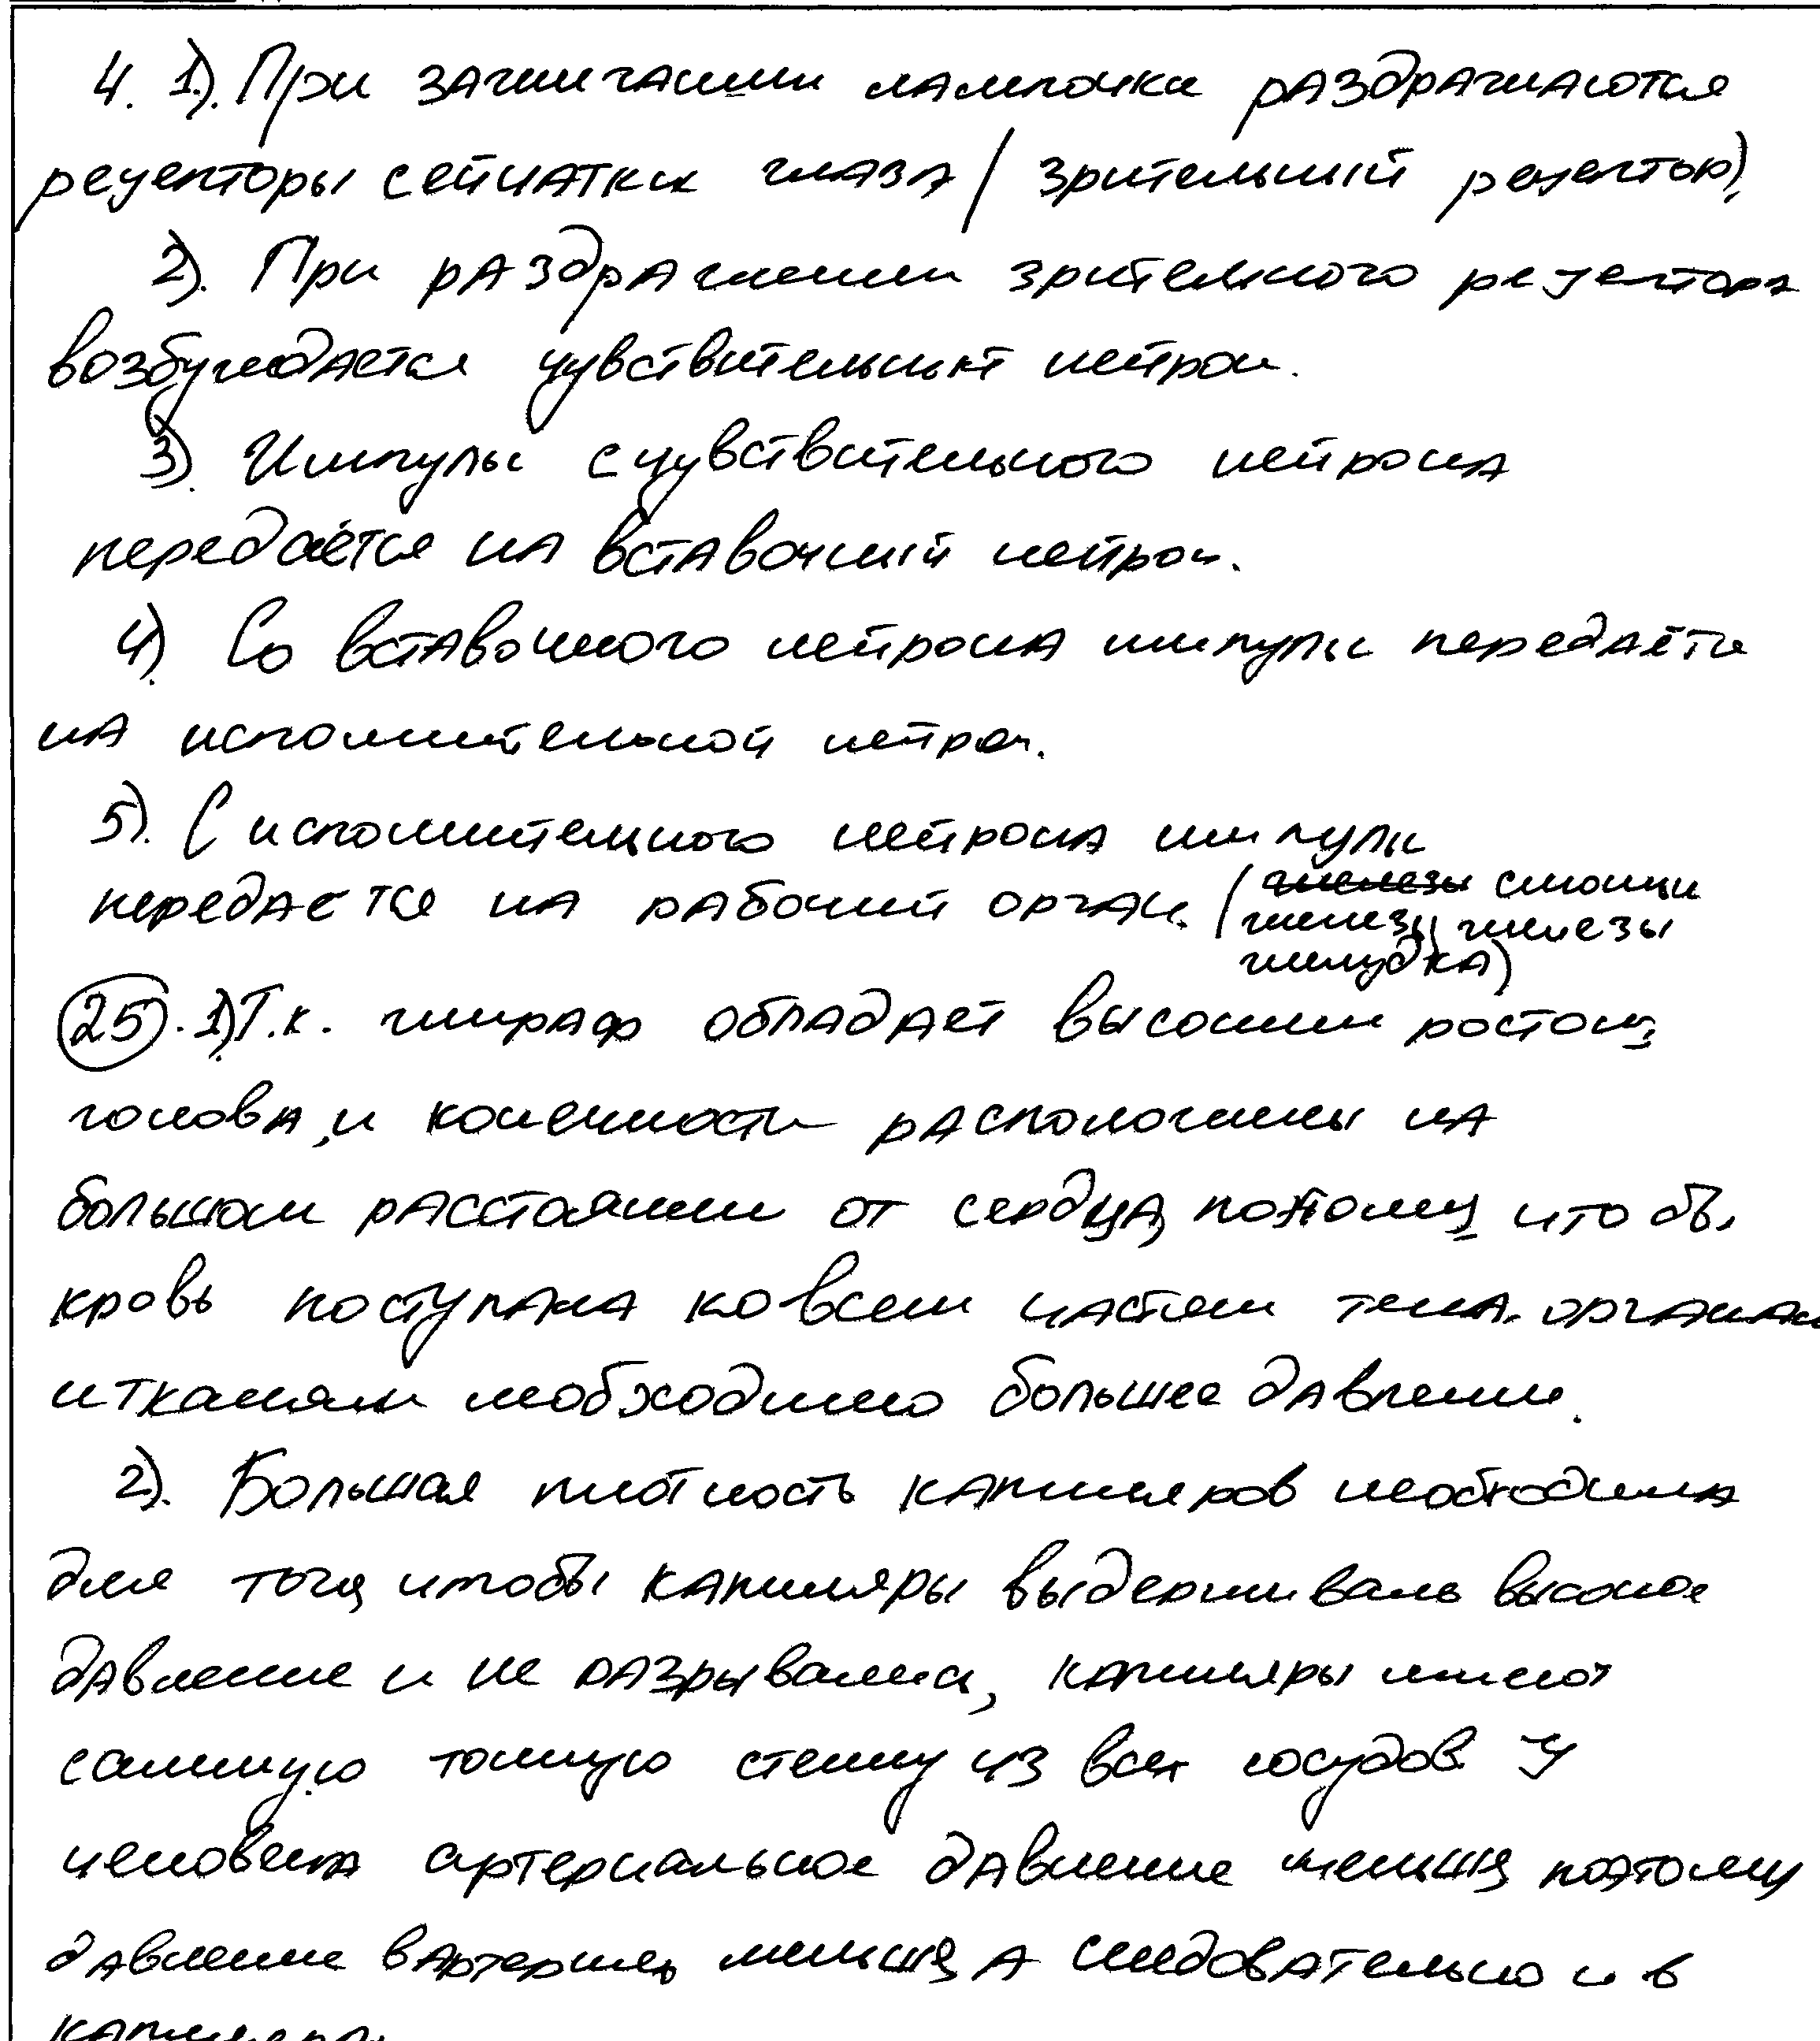 4. 1). При зажигании лампочки раздражаются
рецепторы сетчатки глаза (зрительный рецептор),
2). При раздражении зрительного рецептора
возбуждается чувствительный нейрон.
3). Импульс с чувствительного нейрона
передаётся на вставочный нейрон.
4). Со вставочного нейрона импульс передаётся
на исполнительной нейрон.
5). С исполнительного нейрона импульс
передается на рабочий орган. (слюнные
железы, железы
желудка)
25. 1) Т.к. жираф обладает высоким ростом,
голова, и конечности расположены на
большом расстоянии от сердца, поэтому чтобы
кровь поступала ко всем частям тела, органам
и тканям необходимо большее давление.
2). Большая плотность капиляров необходима
для того, чтобы капиляры выдерживали высокое
давление и не разрывались, капиляры имеют
самую тонкую стенку из всех сосудов. У
человека артериальное давление меньше, поэтому
давление в артериях меньше, а следовательно и в